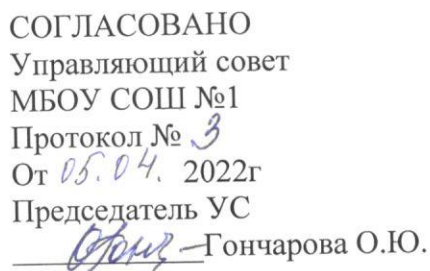 СОГЛАСОВАНО
Управляющий совет
МБОУ СОШ №1
Протокол № 3
От 05.04. 2022г
Председатель УС
Гончарова О.Ю.